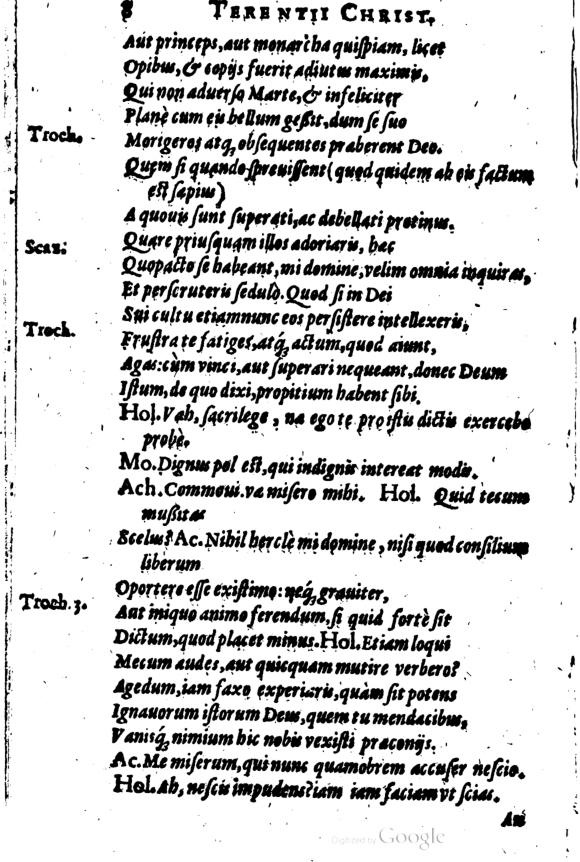 8 TERENTII CHRIST.
Aut princeps, aut monarcha quiſpiam, licet
Opibus, & copijs fuerit adiutus maximis,
Qui non aduerſo Marte, & infeliciter
Planè cum eis bellum geßit, dum ſe ſuo
Troch. Morigeros atq́, obſequentes præberent Deo.
Quem ſi quando ſpreuiſſent (quod quidem ab eis factum
eſt ſæpius)
A quouis ſunt ſuperati, ac debellati protinus.
Scaz: Quare priuſquam illos adoriaris, hæc
Quopacto ſe habeant, mi domine, velim omnia inquiras,
Et perſcruteris ſedulò. Quod ſi in Dei
Sui cultu etiamnunc eos perſiſtere intellexeris,
Troch. Fruſtra te fatiges, atq́, actum, quod aiunt,
Agas: cùm vinci, aut ſuperari nequeant, donec Deum
Iſtum, de quo dixi, propitium habent ſibi.
Hol. Vah, ſacrilege, næ ego te pro iſtis dictis exercebo
probè.
Mo. Dignus pol eſt, qui indignis intereat modis.
Ach. Commoui. væ miſero mihi. Hol. Quid tecum
mußitas
Scelus? Ac. Nihil herclè mi domine, niſi quod conſilium
liberum
Troch. 3. Oportere eſſe exiſtimo: neq́, grauiter,
Aut iniquo animo ferendum, ſi quid fortè ſit
Dictum, quod placet minus. Hol. Etiam loqui
Mecum audes, aut quicquam mutire verbero?
Agedum, iam faxo experiaris, quàm ſit potens
Ignauorum iſtorum Deus, quem tu mendacibus,
Vanisq́, nimium hic nobis vexiſti præconijs.
Ac. Me miſerum, qui nunc quamobrem accuſer neſcio.
Hol. Ah, neſcis impudens? iam iam faciam vt ſcias.
Digitized by Google